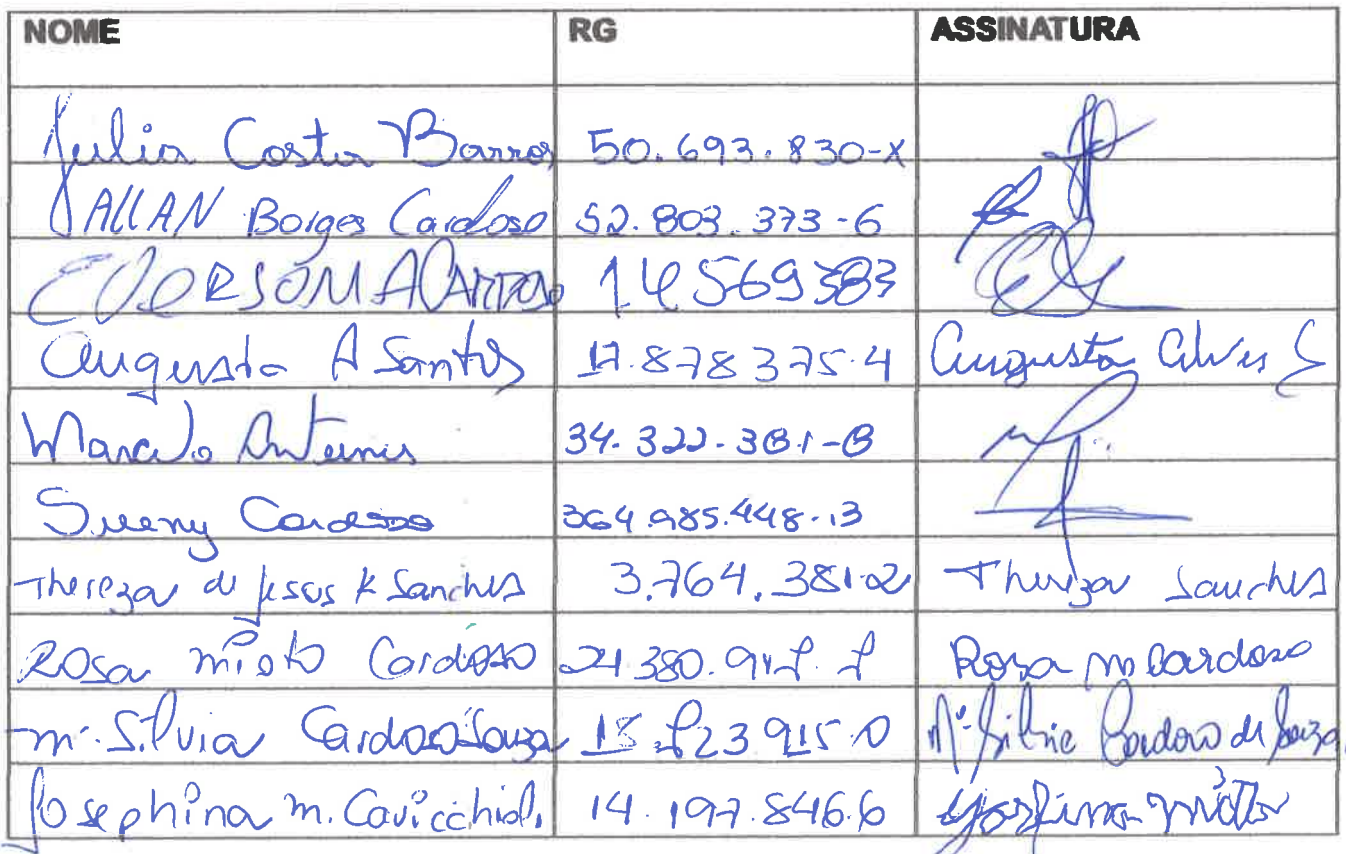 NOME RG ASSINATURA
Julia Costa Barros 50.693.830-X
ALLAN Borges Cardoso 52.803.373-6
EVERSON A CARDOSO 14569383
Augusta A Santos 17.878375-4 Augusta Alves S
Marcelo Antunes 34.322.381-8
Sueny Cardoso 364.985.448-13
Thereza de Jesus K Sanches 3.764.381-2 Thereza Sanches
Rosa mioto Cardoso Rosa m Cardoso
mª Silvia Cardoso Souza Mª Silvia Cardoso de Souza
Josephina m. Cavicchioli 14.197.846.6